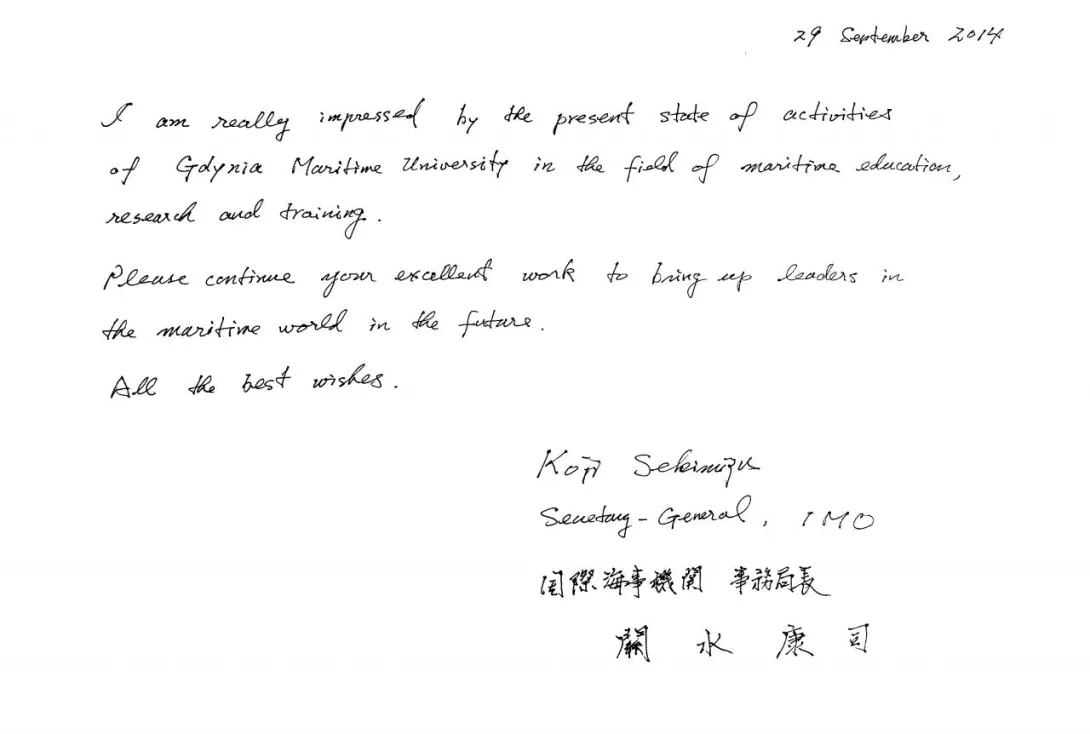 29 September 2014
I am really impressed by the present state of activities
of Gdynia Maritime University in the field of maritime education,
research and training.
Please continue your excellent work to bring up leaders in
the maritime world in the future.
All the best wishes.
Koji Sekimizu
Secretary-General, IMO
国際海事機関 事務局長
關水康司